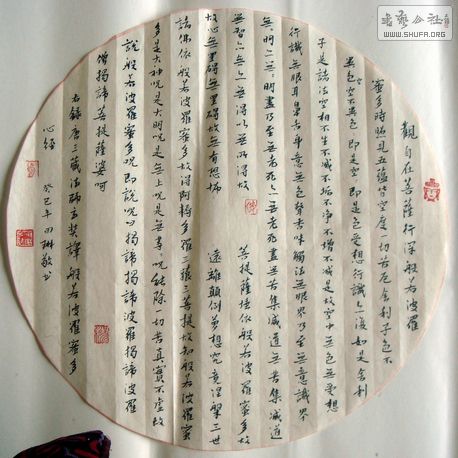 觀自在菩薩行深般若波羅
蜜多時照見五蘊皆空度一切苦厄舍利子色不
異色空不異色即是空即是色受想行識亦復如是舍利
子是諸法空相不生不滅不垢不淨不增不減是故空中無色無受想
行識無眼耳鼻舌身意無色聲香味觸法無眼界乃至無意識界
無、明亦無、明盡乃至無老死亦無老死盡無苦集滅道
無智亦無得以無所得故
菩提薩埵依般若波羅蜜多故
心無罣礙無罣礙故無有恐怖
遠離顛倒夢想究竟涅槃三世
諸佛依般若波羅蜜多故得阿耨多羅三藐三菩提故知般若波羅蜜
多是大神咒是大明咒是無上咒是無等、咒能除一切苦真實不虛故
說般若波羅蜜多咒即說咒曰揭諦揭諦波羅揭諦波羅
僧揭諦菩提薩婆呵
右錄唐三藏法師玄奘譯般若波羅蜜多
心經 癸巳年 敬書
WWW.SHUFA.ORG